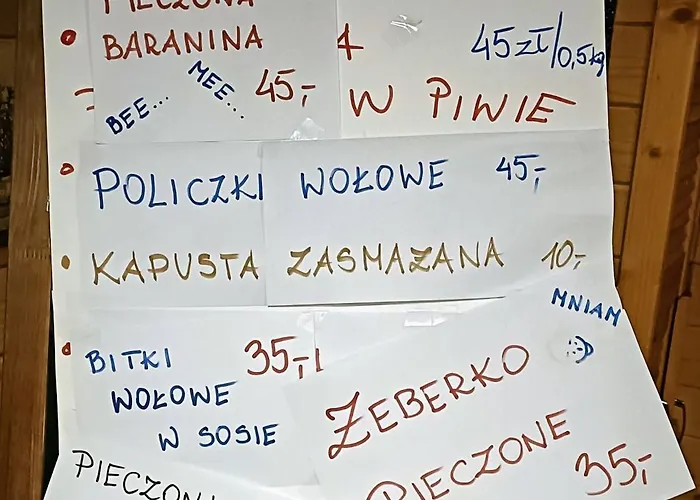 PIECZONA
BARANINA
45zł/0,5kg
BEE... MEE... 45,-
W PIWIE
POLICZKI WOŁOWE 45,-
KAPUSTA ZASMAŻANA 10,-
MNIAM
BITKI 35,-
WOŁOWE
W SOSIE
ŻEBERKO
PIECZONE
35,-